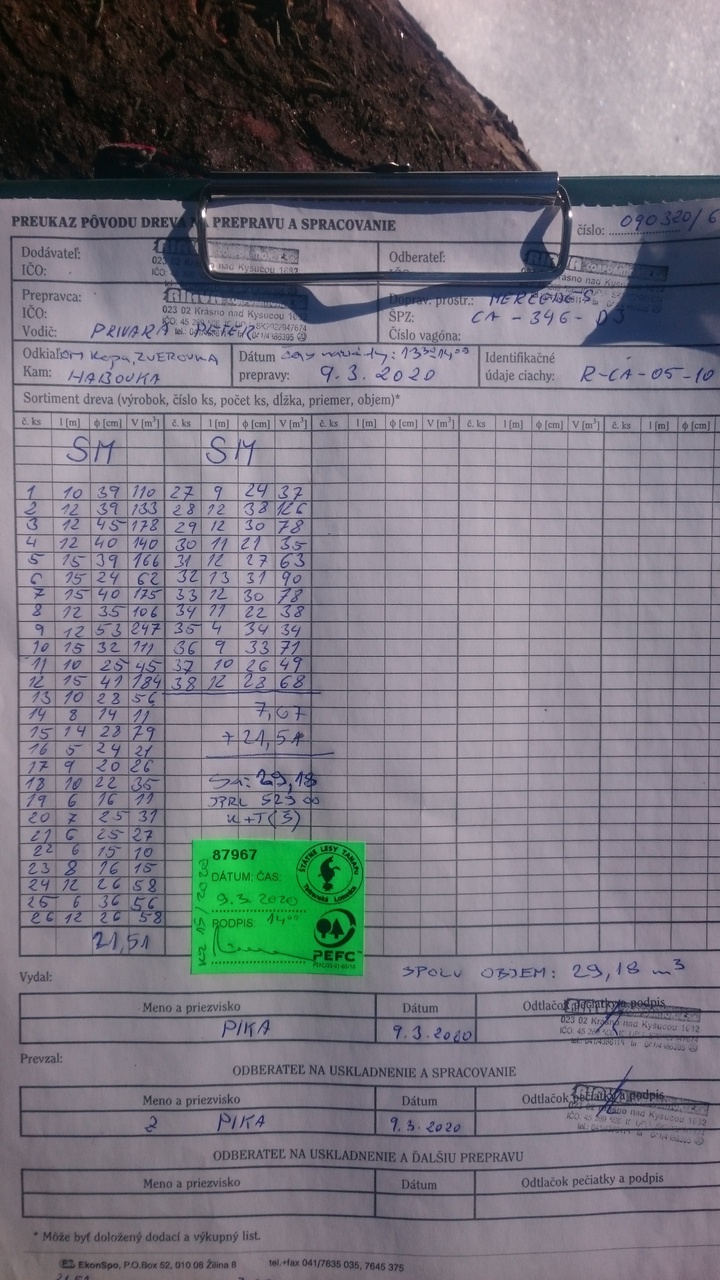 PREUKAZ PÔVODU DREVA NA PREPRAVU A SPRACOVANIE
číslo: 090320/6
Dodávateľ:
IČO:
023 02 Krásno nad Kysucou 1612
Odberateľ:
IČO:
Prepravca:
IČO:
Vodič: PRIVARA PETER
023 02 Krásno nad Kysucou
Doprav. prostr.: MERCEDES
ŠPZ: CA - 346 - DJ
Číslo vagóna:
Odkiaľ: OM Kopa, ZVEROVKA
Kam: HABOVKA
Dátum
prepravy: 9. 3. 2020
Identifikačné
údaje ciachy: R-CA-05-10
Sortiment dreva (výrobok, číslo ks, počet ks, dĺžka, priemer, objem)*
č. ks l [m] ϕ [cm] V [m³] č. ks l [m] ϕ [cm] V [m³] č. ks l [m] ϕ [cm] V [m³] č. ks l [m] ϕ [cm] V [m³] č. ks l [m] ϕ [cm]
SM SM
1 10 39 110 27 9 24 37
2 12 39 133 28 12 38 126
3 12 45 178 29 12 30 78
4 12 40 140 30 11 21 35
5 15 39 166 31 12 27 63
6 15 24 62 32 13 31 90
7 15 40 175 33 12 30 78
8 12 35 106 34 11 22 38
9 12 53 247 35 4 34 34
10 15 32 111 36 9 33 71
11 10 25 45 37 10 26 49
12 15 41 184 38 12 28 68
13 10 28 56
14 8 14 11
7,67
15 14 28 79
+ 21,51
16 5 24 21
17 9 20 26
18 10 22 35
Sa: 29,18
19 6 16 11
JPRL 529 00
20 7 25 31
K+T(3)
21 6 25 27
22 6 15 10
23 8 16 15
24 12 26 58
25 6 36 56
26 12 26 58
21,51
87967
DÁTUM: ČAS:
9.3. 2020
PODPIS: 14⁰⁰
KZ 15/2020
ŠTÁTNE LESY TANAPU
Tatranská Lomnica
PEFC
SPOLU OBJEM: 29,18 m³
Vydal:
Meno a priezvisko Dátum Odtlačok pečiatky a podpis
PIKA 9.3.2020
023 02 Krásno nad Kysucou 1612
Prevzal:
ODBERATEĽ NA USKLADNENIE A SPRACOVANIE
Meno a priezvisko Dátum Odtlačok pečiatky a podpis
PIKA 9.3.2020
ODBERATEĽ NA USKLADNENIE A ĎALŠIU PREPRAVU
Meno a priezvisko Dátum Odtlačok pečiatky a podpis
* Môže byť doložený dodací a výkupný list.
EkonSpo, P.O.Box 52, 010 08 Žilina 8 tel.+fax 041/7635 035, 7645 375